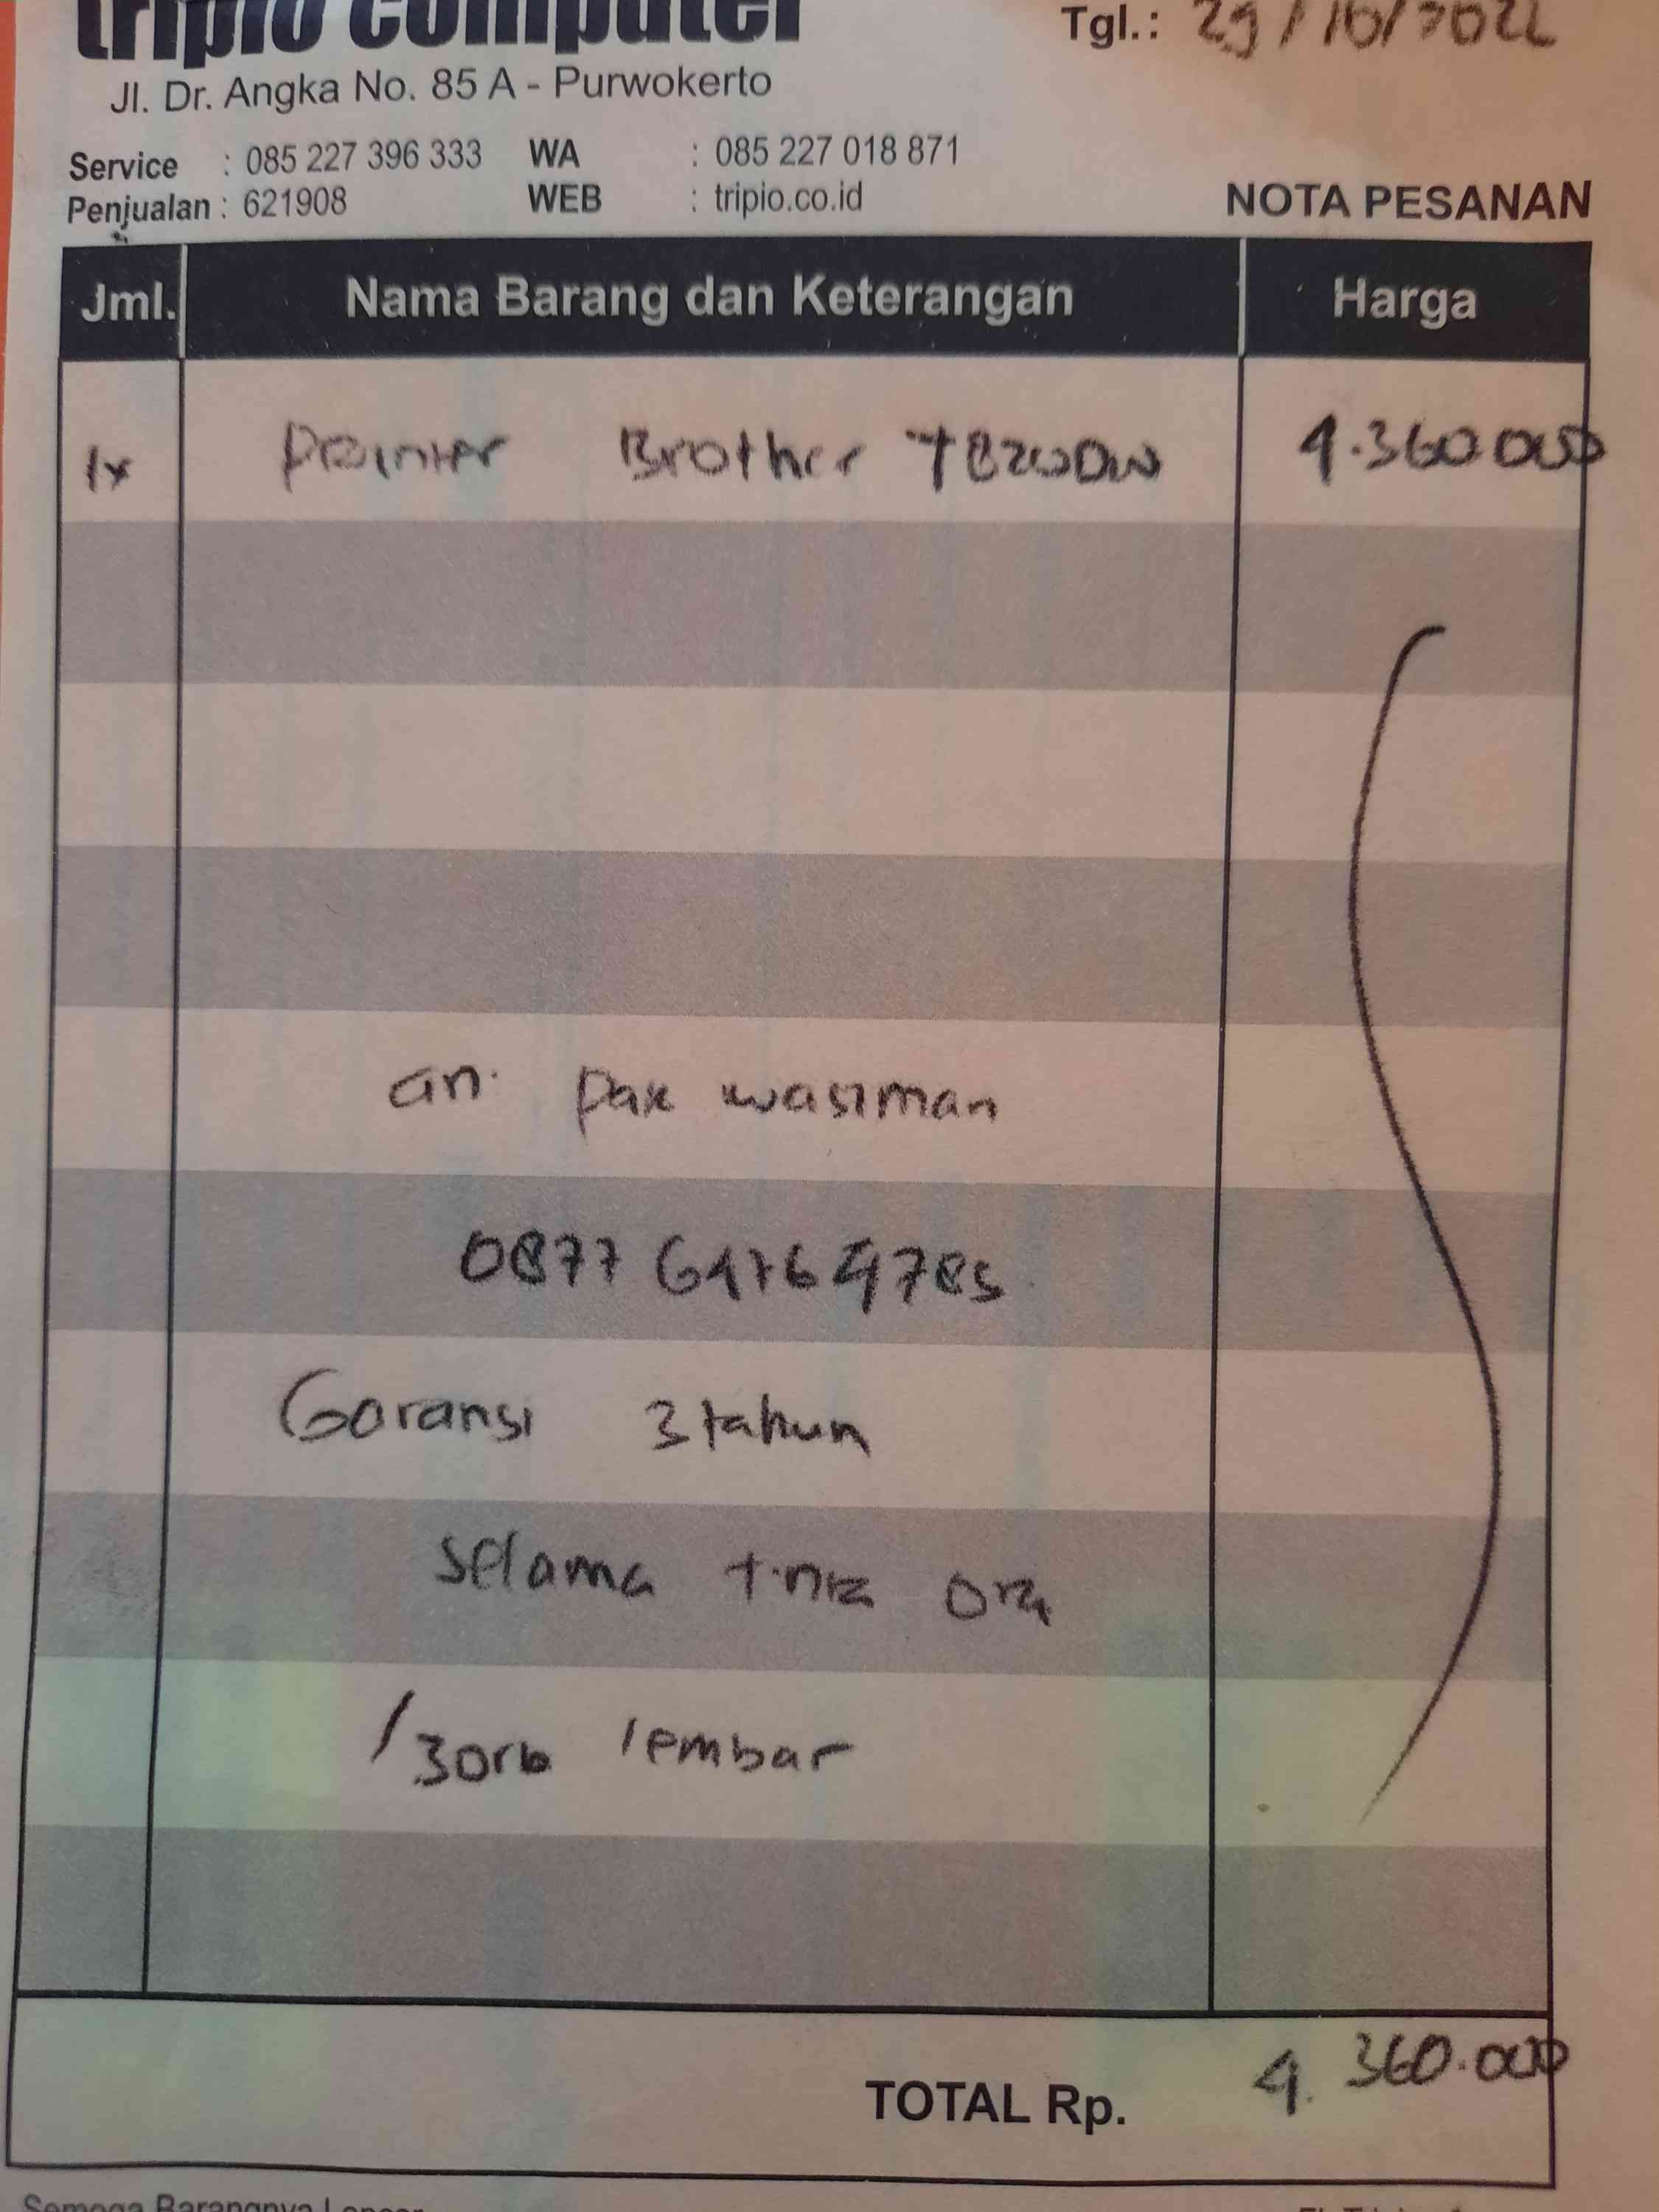 tripio computer
Tgl.: 29/10/2022
Jl. Dr. Angka No. 85 A - Purwokerto
Service : 085 227 396 333 WA : 085 227 018 871
Penjualan : 621908 WEB : tripio.co.id
NOTA PESANAN
Jml. Nama Barang dan Keterangan Harga
1x Printer Brother T820DW 4.360.000
an. Pak wasiman
Garansi 3 tahun
selama
/30rb lembar
TOTAL Rp. 4.360.000
Semoga Barangnya Lancar